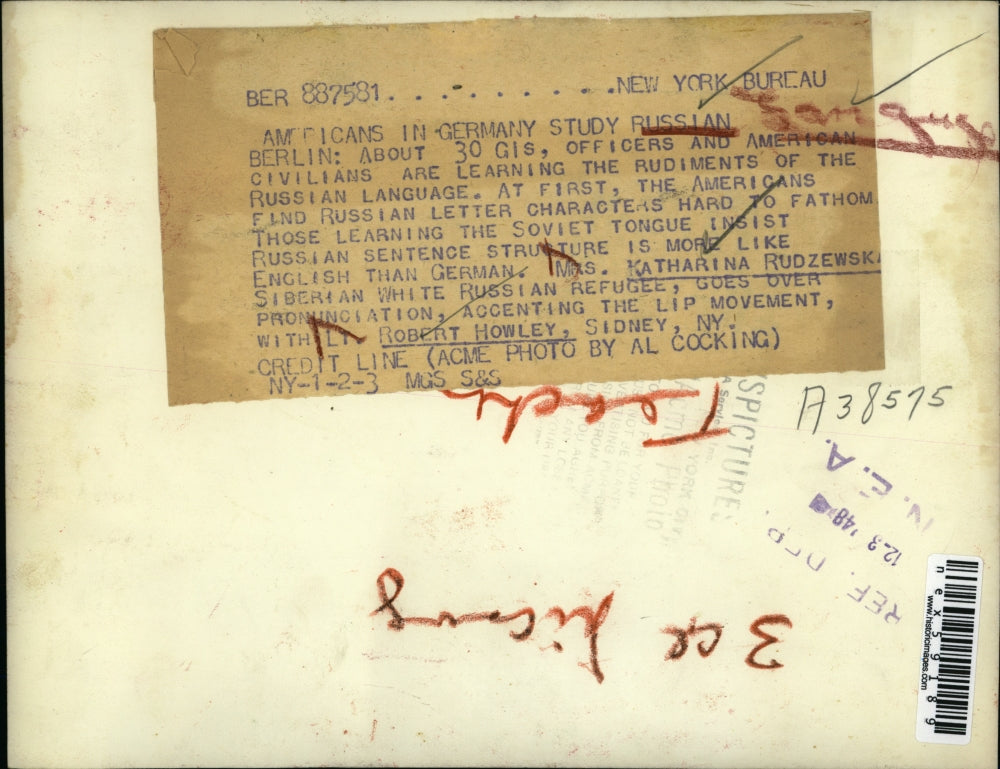 BER 887581..........NEW YORK BUREAU
AMERICANS IN GERMANY STUDY RUSSIAN
BERLIN: ABOUT 30 GIS, OFFICERS AND AMERICAN
CIVILIANS ARE LEARNING THE RUDIMENTS OF THE
RUSSIAN LANGUAGE. AT FIRST, THE AMERICANS
FIND RUSSIAN LETTER CHARACTERS HARD TO FATHOM
THOSE LEARNING THE SOVIET TONGUE INSIST
RUSSIAN SENTENCE STRUCTURE IS MORE LIKE
ENGLISH THAN GERMAN. MRS. KATHARINA RUDZEWSKA
SIBERIAN WHITE RUSSIAN REFUGEE, GOES OVER
PRONUNCIATION, ACCENTING THE LIP MOVEMENT,
WITH LT. ROBERT HOWLEY, SIDNEY, NY.
CREDIT LINE (ACME PHOTO BY AL COCKING)
NY-1-2-3 MGS S&S
A38575
N. E. A.
12.3 '48
REF.
3 CL
nex59189
www.historicimages.com